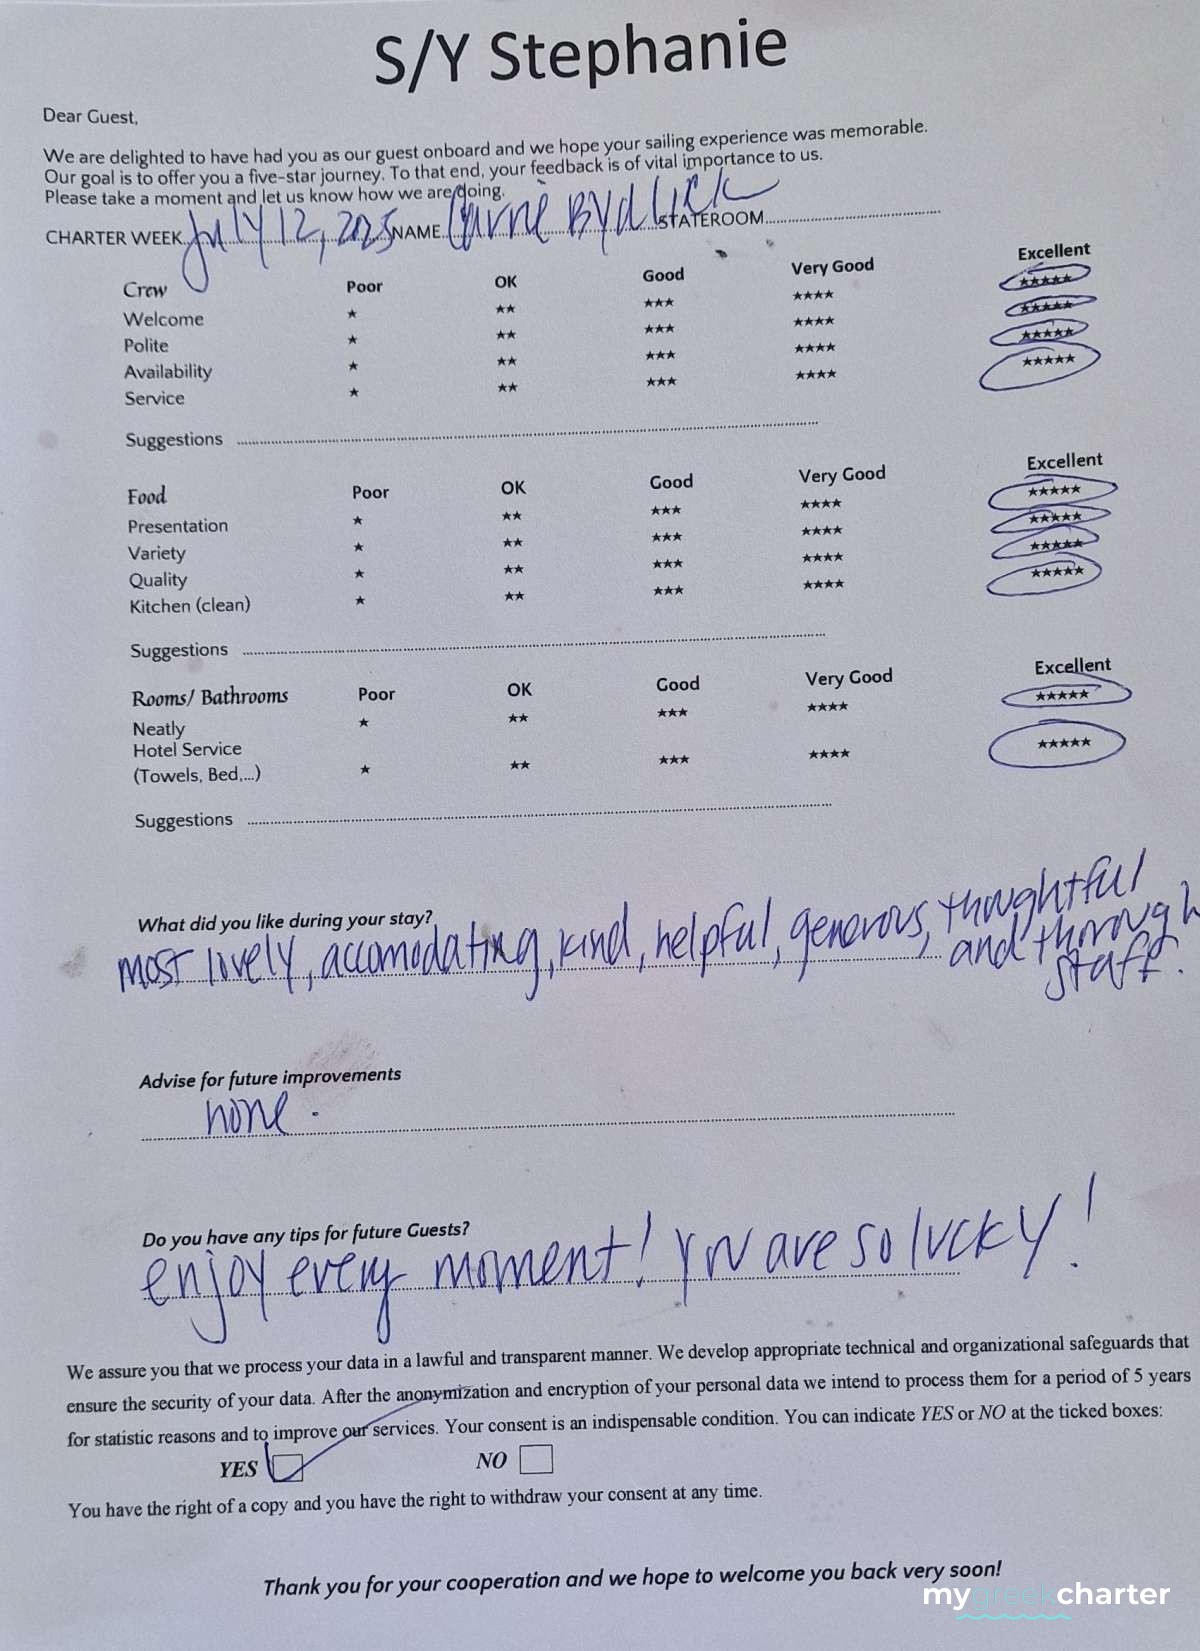 S/Y Stephanie
Dear Guest,
We are delighted to have had you as our guest onboard and we hope your sailing experience was memorable.
Our goal is to offer you a five-star journey. To that end, your feedback is of vital importance to us.
Please take a moment and let us know how we are doing.
CHARTER WEEK July 12, 2025 NAME STATEROOM
Crew Poor OK Good Very Good Excellent
Welcome ★ ★★ ★★★ ★★★★ ★★★★★
Polite ★ ★★ ★★★ ★★★★ ★★★★★
Availability ★ ★★ ★★★ ★★★★ ★★★★★
Service ★ ★★ ★★★ ★★★★ ★★★★★
Suggestions
Food Poor OK Good Very Good Excellent
Presentation ★ ★★ ★★★ ★★★★ ★★★★★
Variety ★ ★★ ★★★ ★★★★ ★★★★★
Quality ★ ★★ ★★★ ★★★★ ★★★★★
Kitchen (clean) ★ ★★ ★★★ ★★★★ ★★★★★
Suggestions
Rooms/ Bathrooms Poor OK Good Very Good Excellent
Neatly ★ ★★ ★★★ ★★★★ ★★★★★
Hotel Service
(Towels, Bed,...) ★ ★★ ★★★ ★★★★ ★★★★★
Suggestions
What did you like during your stay?
most lovely, accomodating, kind, helpful, generous, thoughtful
and thorough
staff.
Advise for future improvements
none.
Do you have any tips for future Guests?
enjoy every moment! You are so lucky!
We assure you that we process your data in a lawful and transparent manner. We develop appropriate technical and organizational safeguards that
ensure the security of your data. After the anonymization and encryption of your personal data we intend to process them for a period of 5 years
for statistic reasons and to improve our services. Your consent is an indispensable condition. You can indicate YES or NO at the ticked boxes:
YES NO
You have the right of a copy and you have the right to withdraw your consent at any time.
Thank you for your cooperation and we hope to welcome you back very soon!
mygreekcharter